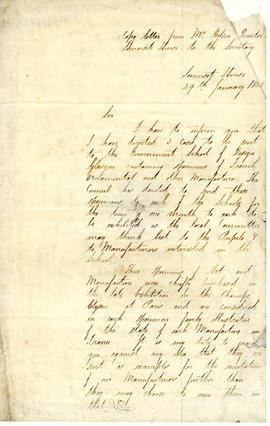 Copy letter from Mr. Wilson Director
Somerset House to the Secretary
Somerset House
29th January
Sir
I have to inform you that
I have directed a case to be sent
to the Government School of Design
Glasgow containing specimens of French
Ornamental and other Manufactures. The
Council has decided to send these
specimens to each of the Schools for
the time of one month to each to
be exhibited as the local Committee
may think best to the Pupils &
to Manufacturers interested in the
School.
These specimens of Art and
Manufacture were chiefly purchased in
the late Exhibition in the Champs
Elysees at Paris and are considered
in each specimen fairly illustrative
of the state of each Manufacture in
France. It is my duty to guard
you against any idea that they are
sent as examples for the imitation
of our Manufacturers further than
they may choose to use them in
that